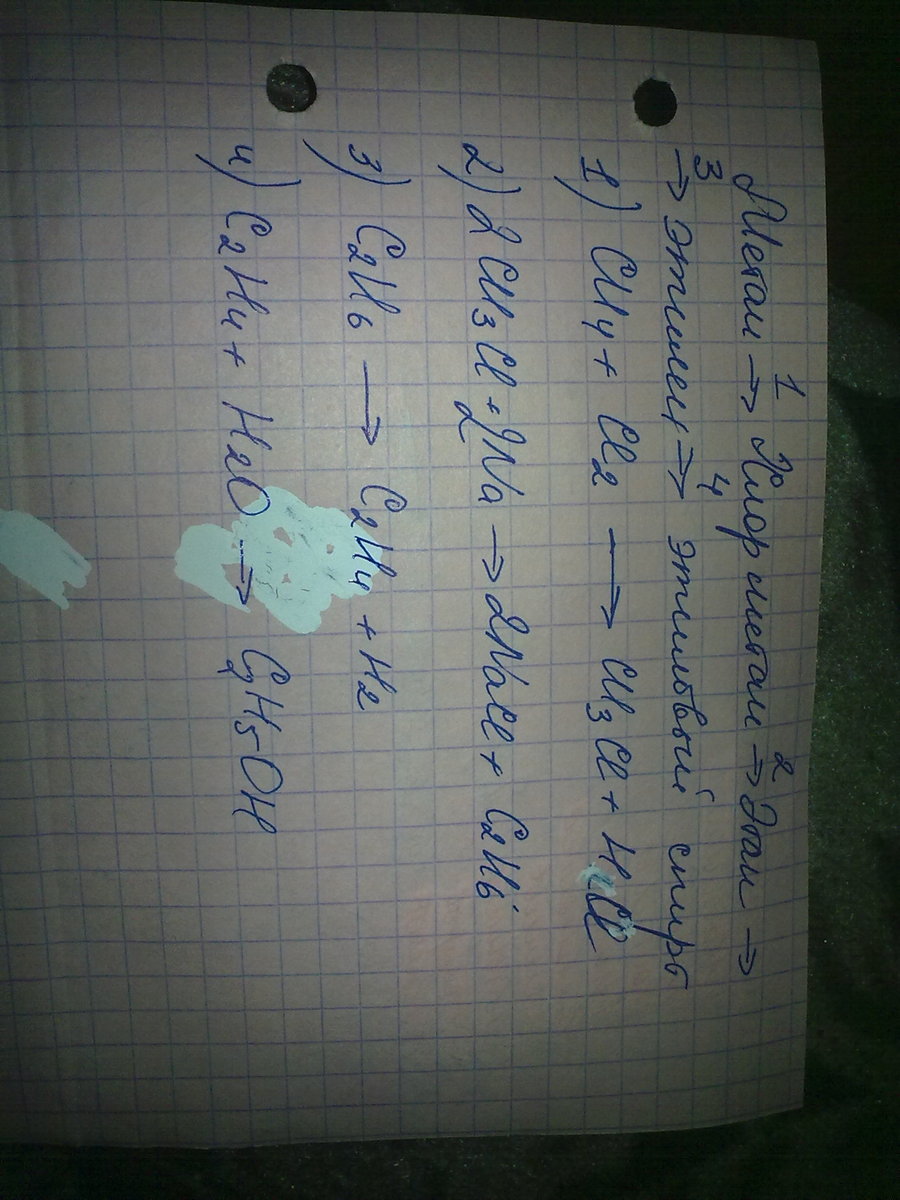 Метан →¹ Хлорметан →² Этан →
→³ этилен →⁴ этиловый спирт
1) CH₄ + Cl₂ → CH₃Cl + HCl
2) 2CH₃Cl + 2Na → 2NaCl + C₂H₆
3) C₂H₆ → C₂H₄ + H₂
4) C₂H₄ + H₂O → C₂H₅OH